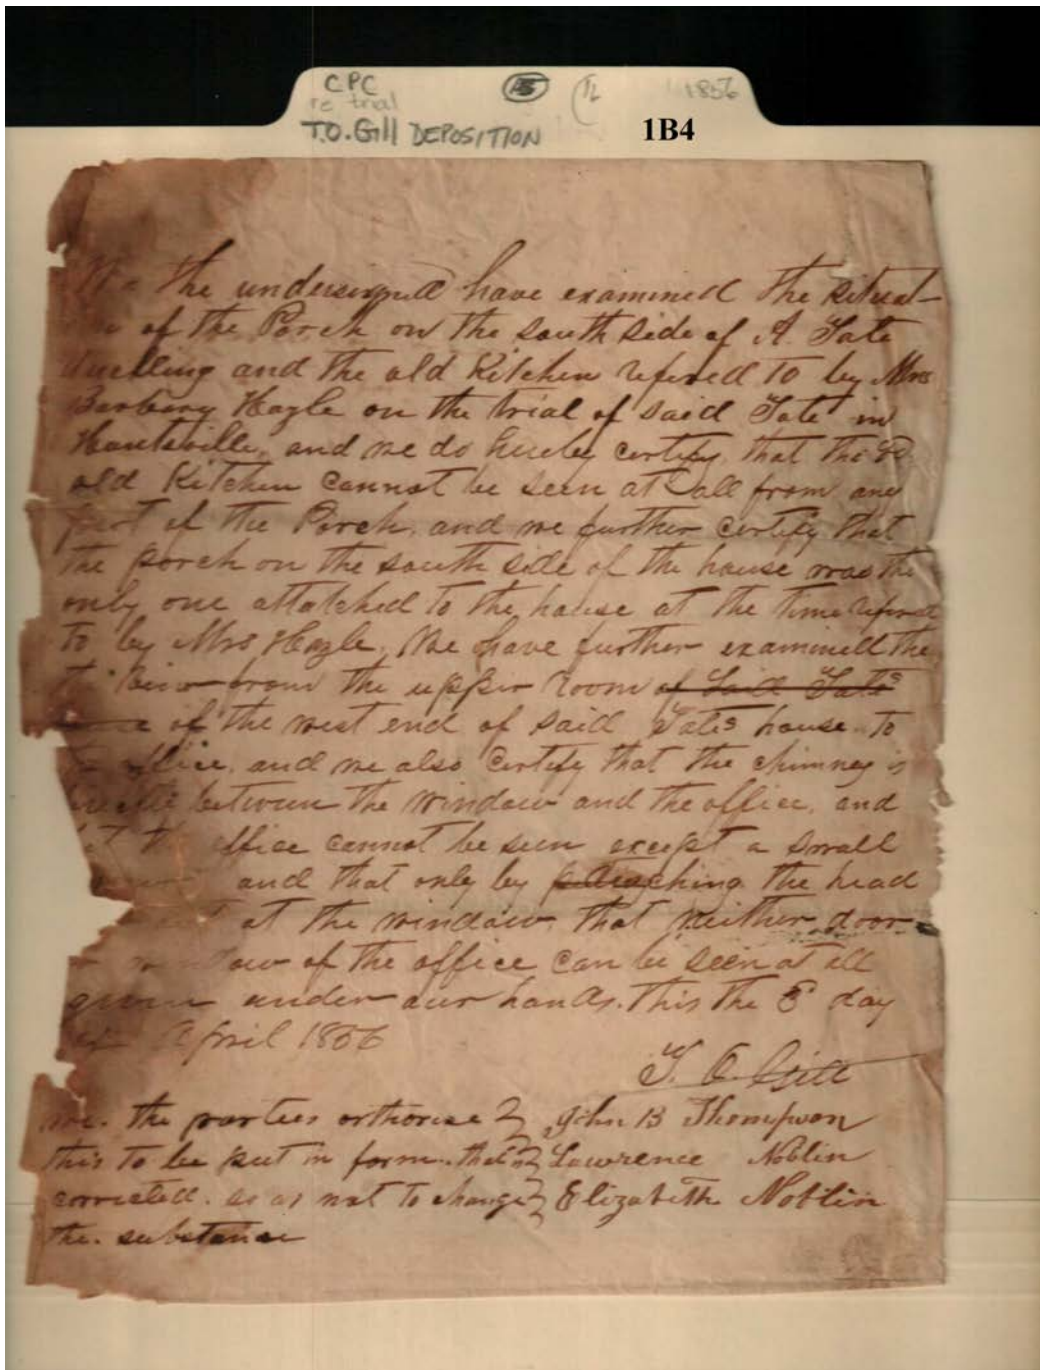 CPC
re trial
T.O. Gill DEPOSITION
1856
1B4
We the undersigned have examined the situat-
of the Porch on the south side of A. Tate
dwelling and the old Kitchen refered to by Mrs
Barbary Hagle on the trial of said Tate in
Huntsville, and we do hereby certify, that the
old Kitchen cannot be seen at all from any
part of the Porch, and we further certify that
the porch on the south side of the house was the
only one attatched to the house at the time refered
to by Mrs Hagle, We have further examined the
view from the upper room of Said Tate's
of the west end of said Tates house. to
office, and we also certify that the chimney is
between the window and the office, and
the office cannot be seen except a small
and that only by the head
at the window, that neither door
window of the office can be seen at all
given under our hands. this the 8 day
April 1856
T. O. Gill
we. the parties orthorise } John B Thompson
this to be put in form. } Lawrence Noblin
corrected. so as not to change } Elizabeth Noblin
the. substance